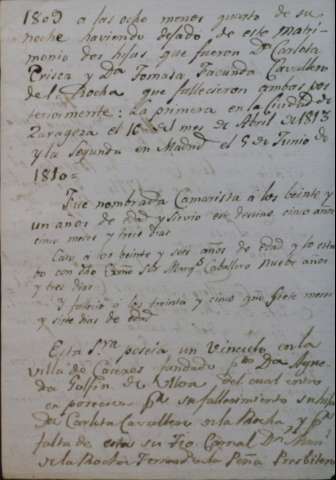 1809 a las ocho menos quarto de su
noche haviendo dejado de este Matri-
monio dos hijas que fueron Dª Carlota
Prisca y Dª Tomasa Facunda Cavallero
de la Rocha que fallecieron ambas pos
teriormente: La primera en la Ciudad de
Zaragoza el 16 del mes de Abril de 1813
y la segunda en Madrid el 5 de Junio de
1810=
Fue nombrada Camarista á los beinte y
un años de edad y sirvio ese destino cinco años
cinco meses y tres dias
Caso a los beinte y seis años de edad y lo estu
bo con Sor Marqs Caballero nuebe años
y tres dias
Y falecio a los treinta y cinco años siete meses
y siete dias de edad
Esta Sra poseia un vinculo en la
villa de Cáceres fundado pr Dª Ayne
da Golfin de Ulloa, del cual entro
en posesion pr su fallecimiento su hija
Dª Carlota Cavallero de la Rocha y pr
falta de esta su Tio Carnal Dn
de la Rocha de la Peña Presbitero